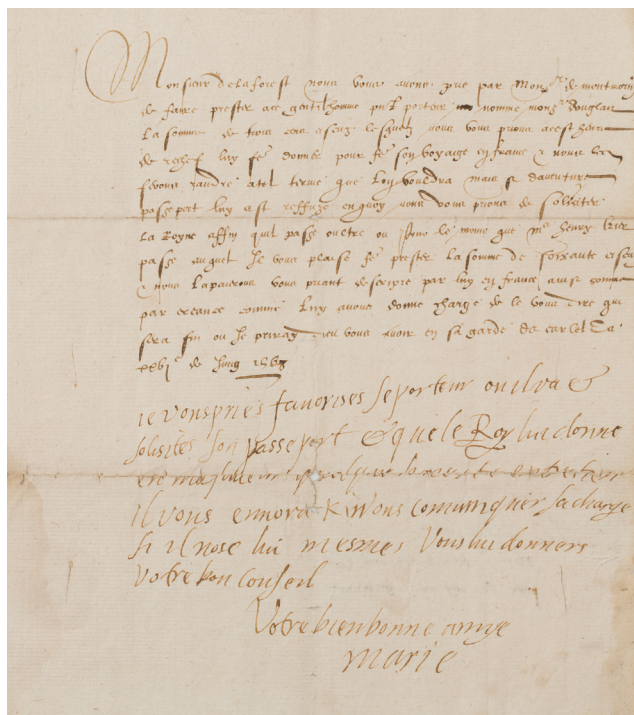 Monsieur delaforest nous vous avons prie par Mons^r de montmorin
de faire prester a ce gentilhomme pnt porteur nomme mons^r Douglas
La somme de trois cens escuz lesquelz nous vous prions a cest heure
de rechef luy fe donner pour fe son voyaige en france & nous les
ferons randre a tel terme que Luy vouldra mais si daventure
passeport luy est reffuze en quoy nous vous prions de soliciter
La Royne affin quil passe oultre ou sinon le moins que m^e henry
passe auquel Il vous plaise fe prester La somme de soixante escuz
& nous La paierons vous priant descripre par luy en france ainsi comme
par creance comme Luy avons donne charge de le vous dire qui
sera fin ou Je priray dieu vous avoir en sa garde De carlel Ce
xxvj^e de Juing 1568
ie vous pries favorises se porteur ou il va &
solisites son passeport & que le Roy lui donne
en
il vous ennora k a vous comuniquer sa charge
si il nose lui mesmes vous lui donneres
votre bon conseil
Votre bien bonne amye
Marie